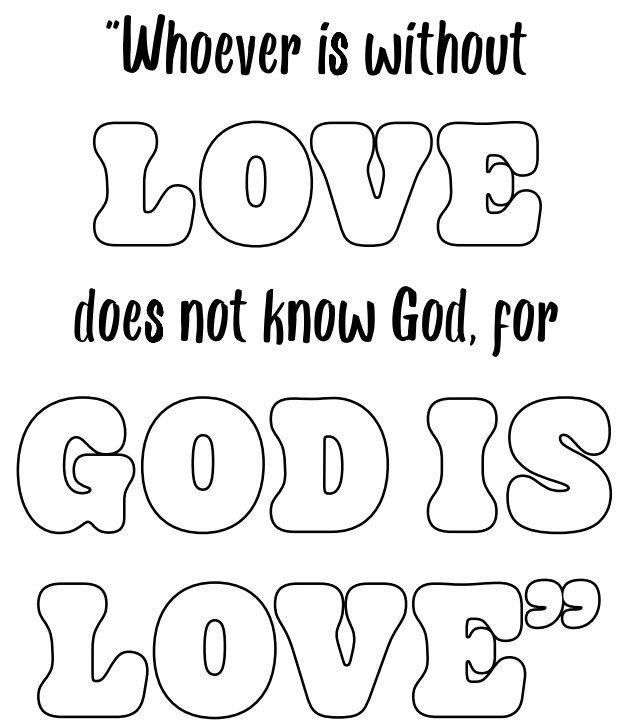 "Whoever is without
LOVE
does not know God, for
GOD IS
LOVE”